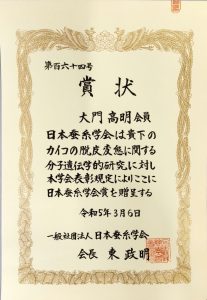 第百六十四号
賞状
大門高明会員
日本蚕糸学会は貴下の
カイコの脱皮変態に関する
分子遺伝学的研究に対し
本学会表彰規定によりここに
日本蚕糸学会賞を贈呈する
令和5年3月6日
一般社団法人日本蚕糸学会
会長 東 政明